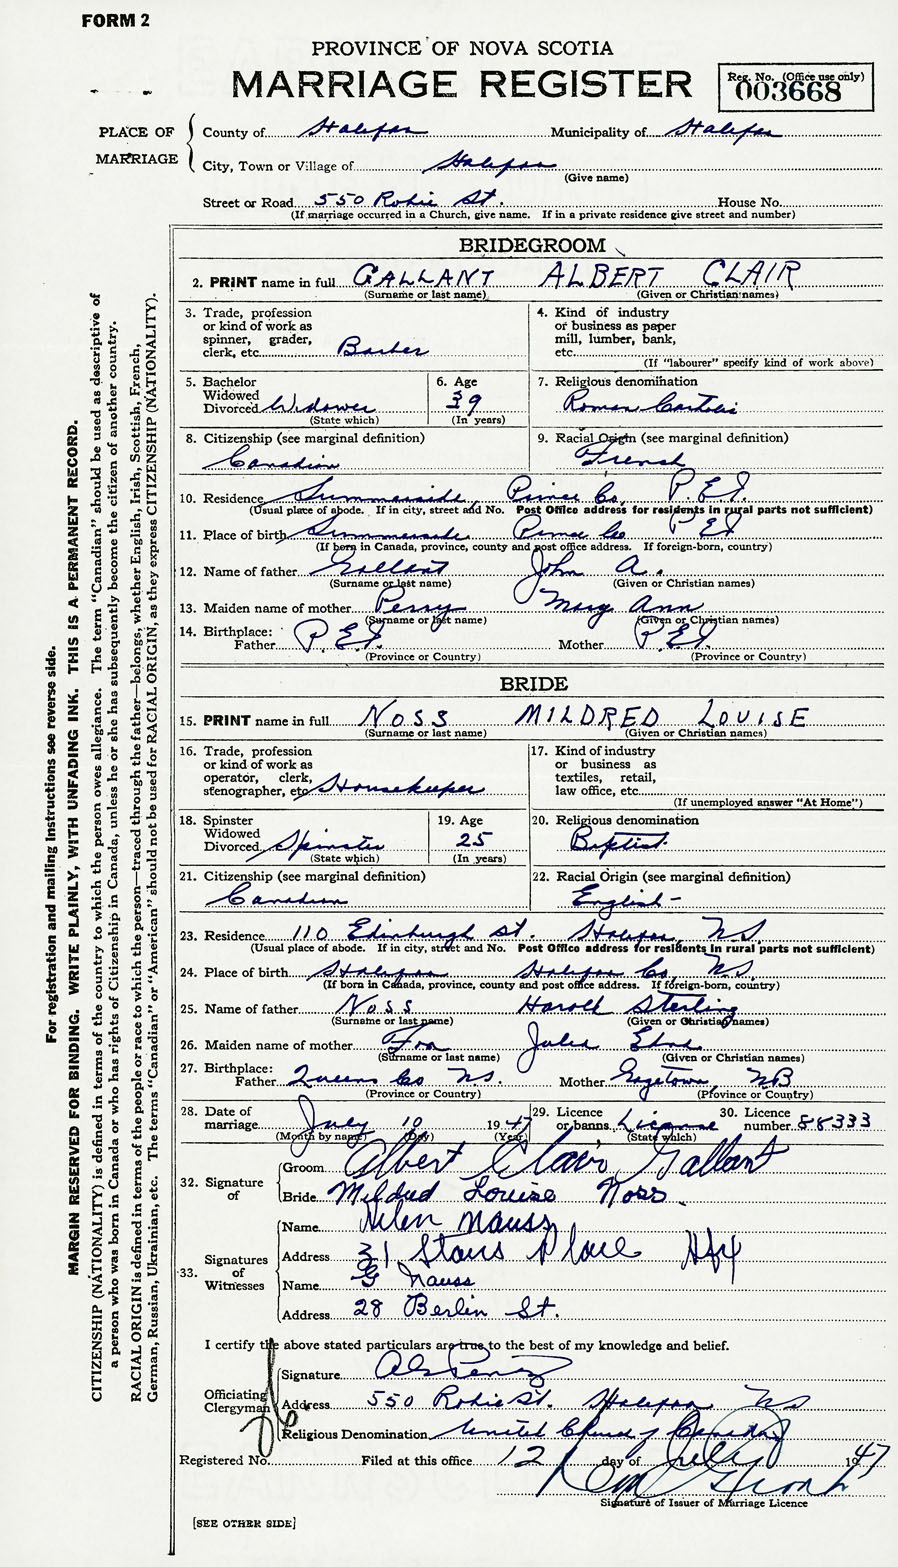 FORM 2
PROVINCE OF NOVA SCOTIA
MARRIAGE REGISTER
Reg. No. (Office use only)
003668
PLACE OF MARRIAGE
County of Halifax Municipality of Halifax
City, Town or Village of Halifax
(Give name)
Street or Road 550 Robie St. House No.
(If marriage occurred in a Church, give name. If in a private residence give street and number)
BRIDEGROOM
2. PRINT name in full GALLANT ALBERT CLAIR
(Surname or last name) (Given or Christian names)
3. Trade, profession
or kind of work as
spinner, grader,
clerk, etc. Barber
4. Kind of industry
or business as paper
mill, lumber, bank,
etc.
(If "labourer" specify kind of work above)
5. Bachelor
Widowed
Divorced Widower
(State which)
6. Age
39
(In years)
7. Religious denomination
Roman
8. Citizenship (see marginal definition)
Canadian
9. Racial Origin (see marginal definition)
French
10. Residence Summerside Prince Co P.E.I.
(Usual place of abode. If in city, street and No. Post Office address for residents in rural parts not sufficient)
11. Place of birth Summerside Prince Co PEI
(If born in Canada, province, county and post office address. If foreign-born, country)
12. Name of father Gallant John A.
(Surname or last name) (Given or Christian names)
13. Maiden name of mother Perry Mary Ann
(Surname or last name) (Given or Christian names)
14. Birthplace:
Father P.E.I. Mother P.E.I.
(Province or Country) (Province or Country)
BRIDE
15. PRINT name in full NOSS MILDRED LOUISE
(Surname or last name) (Given or Christian names)
16. Trade, profession
or kind of work as
operator, clerk,
stenographer, etc Housekeeper
17. Kind of industry
or business as
textiles, retail,
law office, etc.
(If unemployed answer "At Home")
18. Spinster
Widowed
Divorced Spinster
(State which)
19. Age
25
(In years)
20. Religious denomination
Baptist
21. Citizenship (see marginal definition)
Canadian
22. Racial Origin (see marginal definition)
English -
23. Residence 110 Edinburgh St. Halifax N.S.
(Usual place of abode. If in city, street and No. Post Office address for residents in rural parts not sufficient)
24. Place of birth Halifax Halifax Co. N.S.
(If born in Canada, province, county and post office address. If foreign-born, country)
25. Name of father Noss Harold Sterling
(Surname or last name) (Given or Christian names)
26. Maiden name of mother Julia
(Surname or last name) (Given or Christian names)
27. Birthplace:
Father Queens Co NS. Mother Gagetown, NB
(Province or Country) (Province or Country)
28. Date of
marriage July 10 1947
(Month by name) (Day) (Year)
29. Licence
or banns License
(State which)
30. Licence
number 88333
32. Signature of
Groom Albert Clair Gallant
Bride Mildred Louise Noss
33. Signatures of Witnesses
Name Helen Nauss
Address 31 Stairs Place Hfx
Name G Nauss
Address 28 Berlin St.
I certify the above stated particulars are true to the best of my knowledge and belief.
Officiating Clergyman
Signature
Address 550 Robie St. Halifax NS
Religious Denomination United Church of Canada
Registered No. Filed at this office 12 day of July 1947
Signature of Issuer of Marriage Licence
[SEE OTHER SIDE]
For registration and mailing instructions see reverse side.
MARGIN RESERVED FOR BINDING. WRITE PLAINLY, WITH UNFADING INK. THIS IS A PERMANENT RECORD.
CITIZENSHIP (NATIONALITY) is defined in terms of the country to which the person owes allegiance. The term "Canadian" should be used as descriptive of
a person who was born in Canada or who has rights of Citizenship in Canada, unless he or she has subsequently become the citizen of another country.
RACIAL ORIGIN is defined in terms of the people or race to which the person—traced through the father—belongs, whether English, Irish, Scottish, French,
German, Russian, Ukrainian, etc. The terms "Canadian" or "American" should not be used for RACIAL ORIGIN, as they express CITIZENSHIP (NATIONALITY).